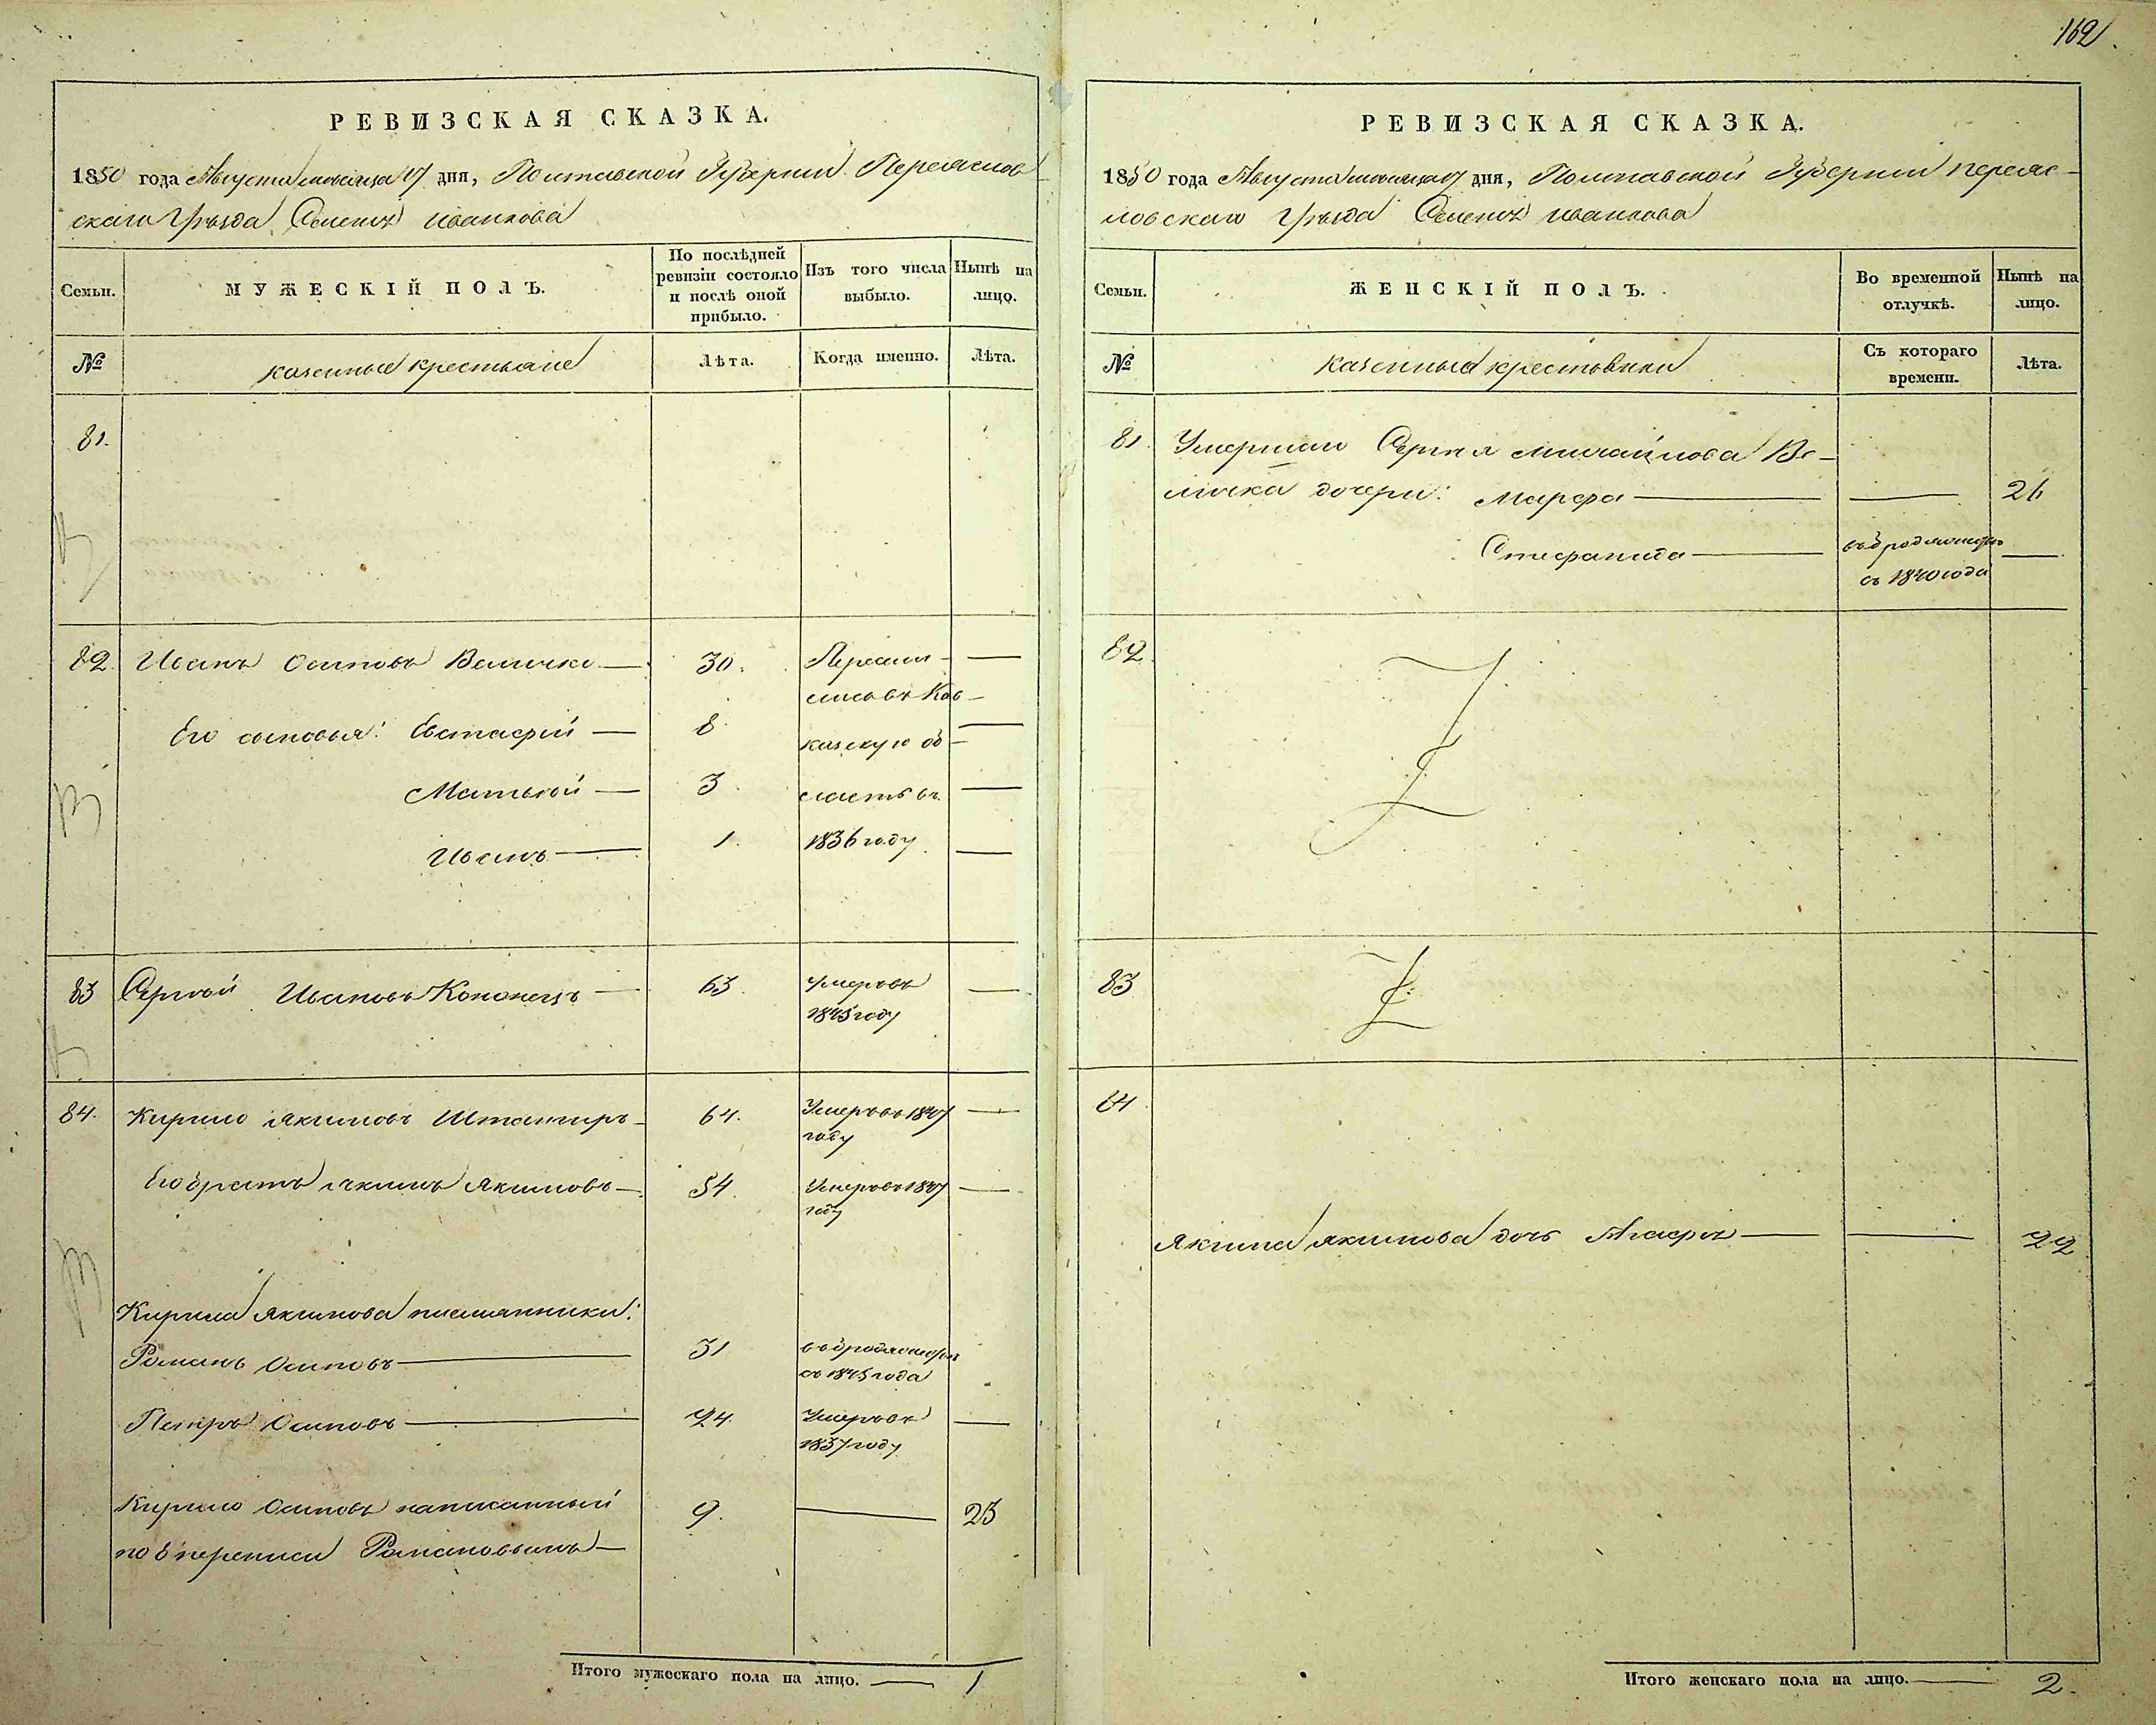 162.
РЕВИЗСКАЯ СКАЗКА.
1850 года Августа месяца 17 дня, Полтавской Губернии Переяслов-
скаго Уезда Селенія Иванкова
Семьи. МУЖЕСКІЙ ПОЛЪ. По послѣдней ревизіи состояло и послѣ оной прибыло. Изъ того числа выбыло. Нынѣ на лицо.
№ казенные крестьяне Лѣта. Когда именно. Лѣта.
81.
82. Иванъ Осиповъ Величко — 30. Пересе-
лился въ Кав-
Его сыновья: Евстафій — 8
казскую об-
Матвей — 3
ласть въ
Иванъ — 1. 1836 году
83 Сергей Ивановъ Кононецъ — 63. умеръ въ
1845 году
84. Кирило Якимовъ Штантиръ 64. Умеръ въ 1847
году
Его братъ Якимъ Якимовъ — 54. Умеръ въ 1847
году
Кирила Якимова племянники:
Романъ Осиповъ — 31 въ бродяжестве
съ 1845 года
Петръ Осиповъ — 24. Умеръ въ
1837 году
Кирило Осиповъ написанный 9. — 25
по 8 переписи Романовымъ —
Итого мужескаго пола на лицо. — 1
РЕВИЗСКАЯ СКАЗКА.
1850 года Августа месяца 17 дня, Полтавской Губернии Переяс-
ловскаго Уезда Селенія Иванкова
Семьи. ЖЕНСКІЙ ПОЛЪ. Во временной отлучкѣ. Нынѣ на лицо.
№ казенные крестьянки Съ котораго времени. Лѣта.
81. Умершаго Сергея Михайлова Ве-
личка дочери: Марфа — — 26
Стефанида — въ бродяжестве —
съ 1840 года
82.
83
84
Якима Якимова дочь Агафія — — 22
Итого женскаго пола на лицо. — 2.